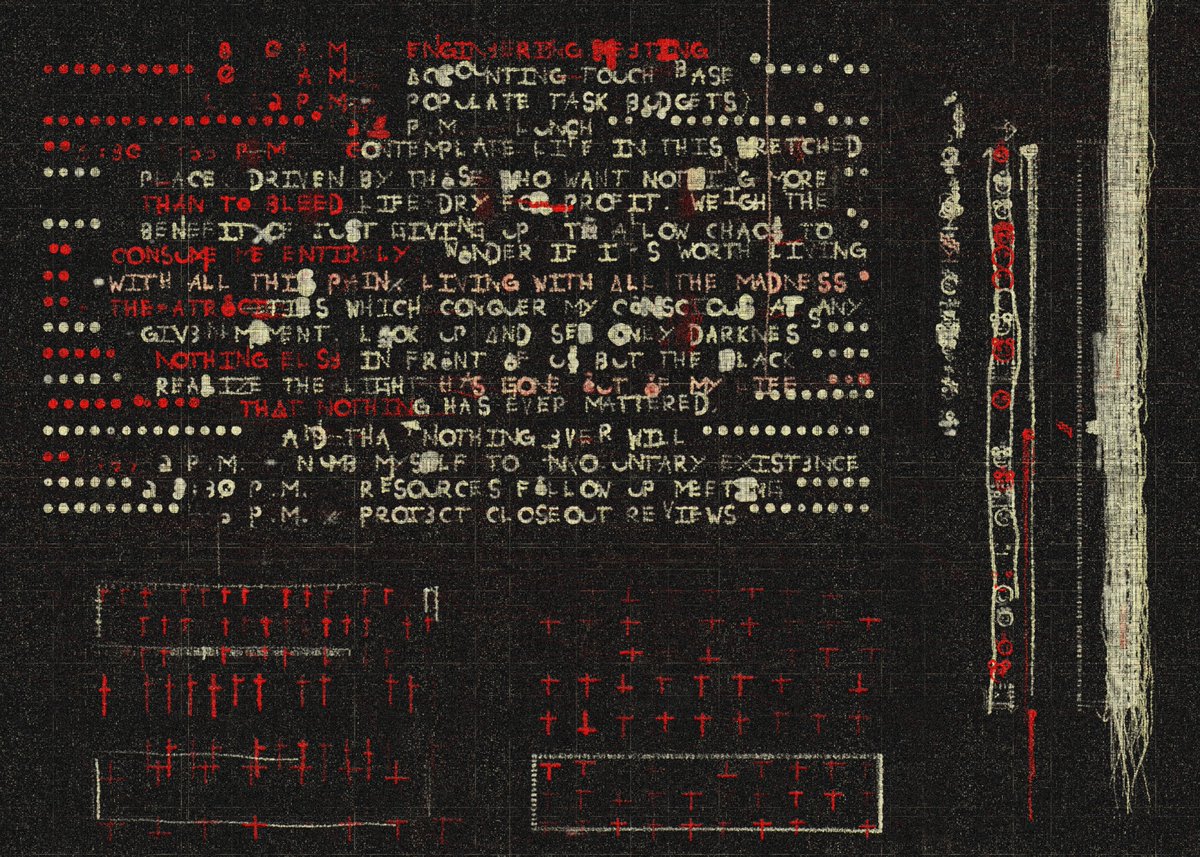 8 A.M. ENGINEERING MEETING
A.M. ACCOUNTING TOUCH BASE
12 P.M. POPULATE TASK BUDGETS
P.M. LUNCH
P.M. CONTEMPLATE LIFE IN THIS WRETCHED
PLACE DRIVEN BY THOSE WHO WANT NOTHING MORE
THAN TO BLEED LIFE DRY FOR PROFIT. WEIGH THE
BENEFIT OF JUST GIVING UP TO ALLOW CHAOS TO
CONSUME ME ENTIRELY WONDER IF IT'S WORTH LIVING
WITH ALL THIS PAIN LIVING WITH ALL THE MADNESS
THE ATROCITIES WHICH CONQUER MY CONSCIOUS AT ANY
GIVEN MOMENT LOOK UP AND SEE ONLY DARKNES
NOTHING ELSE IN FRONT OF US BUT THE BLACK
REALIZE THE LIGHT HAS GONE OUT OF MY LIFE
THAT NOTHING HAS EVER MATTERED.
AND THAT NOTHING EVER WILL
2 P.M. NUMB MYSELF TO INVOLUNTARY EXISTENCE
2:30 P.M. RESOURCES FOLLOW UP MEETING
P.M. PROJECT CLOSEOUT REVIEWS